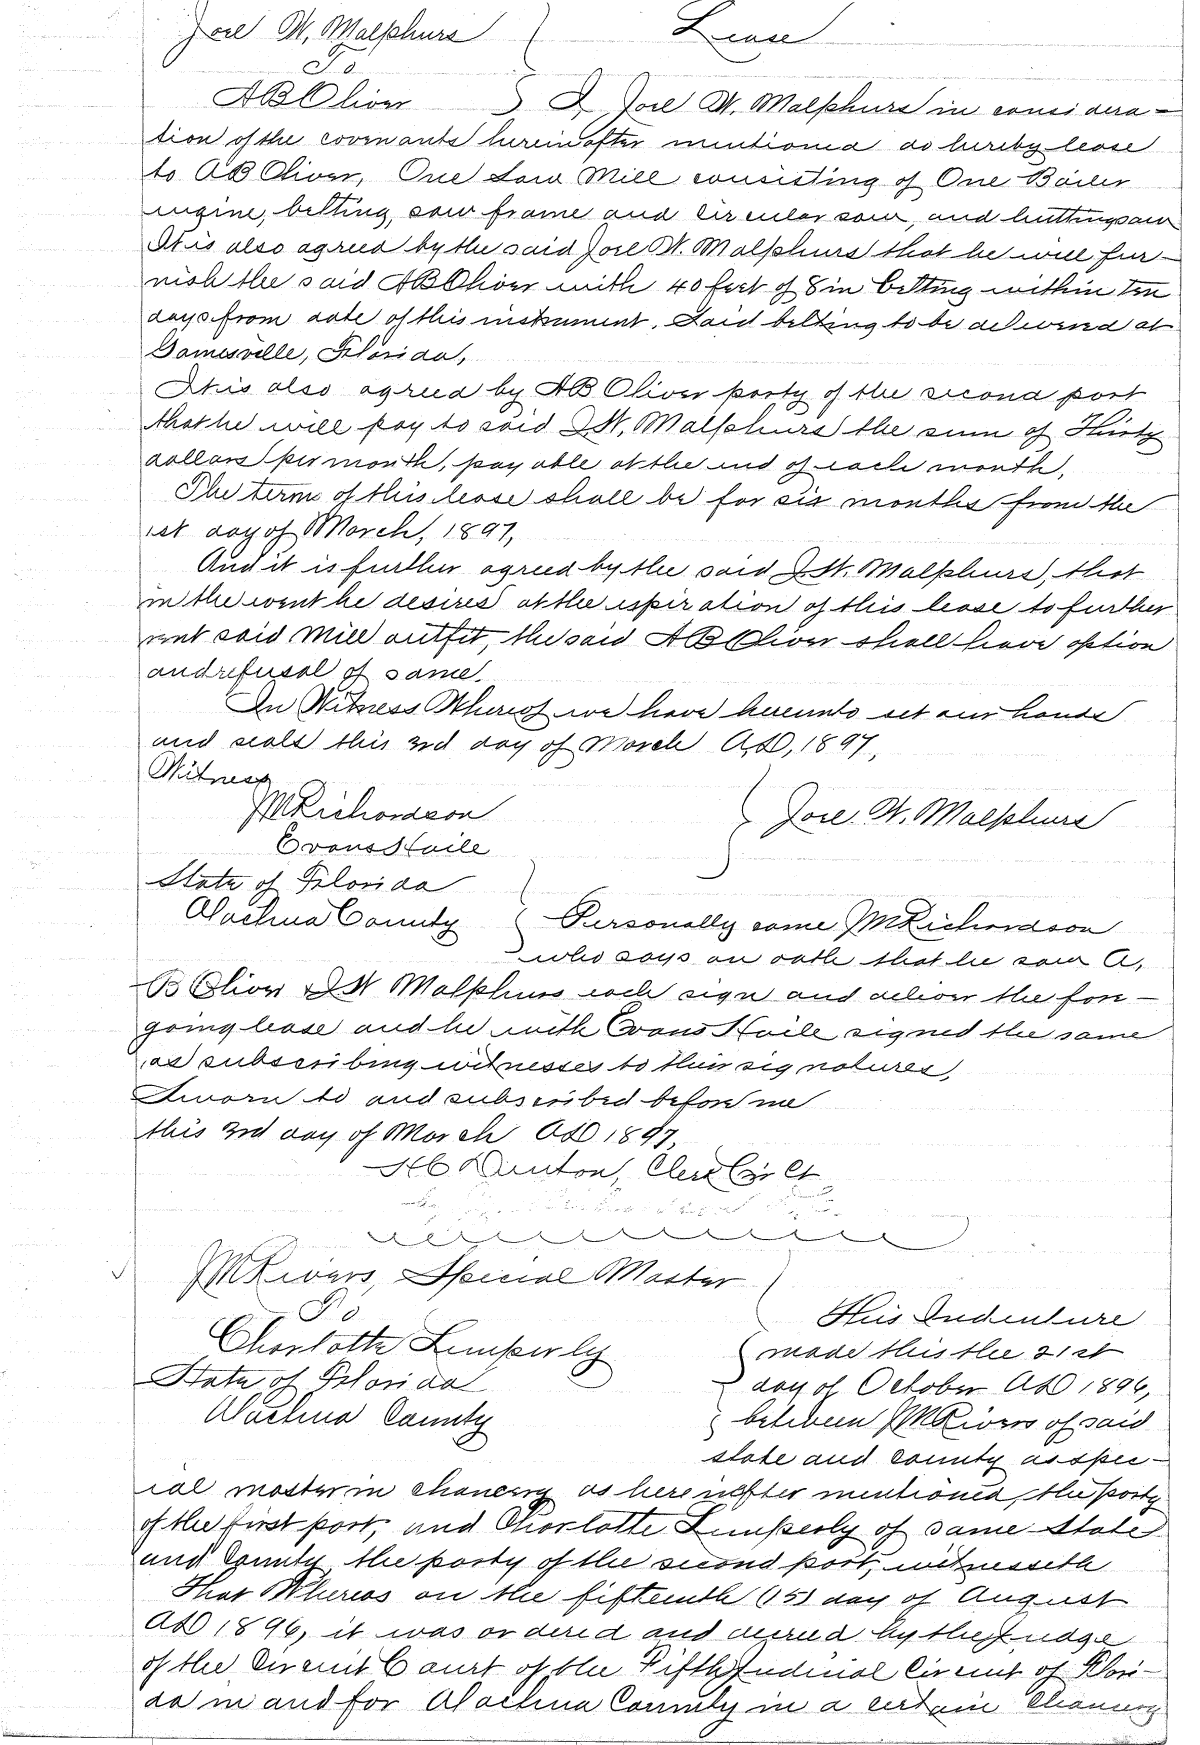 Joel W. Malphurs Lease
To
A B Oliver I, Joel W. Malphurs in considera-
tion of the covenants hereinafter mentioned do hereby lease
to A B Oliver, One Saw Mill consisting of One Boiler
engine, belting, saw frame and Circular saw, and butting saw
It is also agreed by the said Joel W. Malphurs that he will fur-
nish the said A B Oliver with 40 feet of 8 in belting within ten
days from date of this instrument. Said belting to be delivered at
Gainesville, Florida,
It is also agreed by A B Oliver party of the second part
that he will pay to said J W. Malphurs the sum of Thirty
dollars per month, payable at the end of each month,
The term of this lease shall be for six months from the
1st day of March, 1897,
And it is further agreed by the said J W. Malphurs, that
in the event he desires at the expiration of this lease to further
rent said Mill outfit, the said A B Oliver shall have option
and refusal of same.
In Witness Whereof we have hereunto set our hands
and seals this 3rd day of March A.D, 1897,
Witness
J M Richardson Joel W. Malphurs
Evans Haile
State of Florida
Alachua County Personally came J M Richardson
who says on oath that he saw A,
B Oliver & J W Malphurs each sign and deliver the fore-
going lease and he with Evans Haile signed the same
as subscribing witnesses to their signatures,
Sworn to and subscribed before me
this 3rd day of March AD 1897,
H C Denton, Clerk Cir Ct
J M Rivers, Special Master
To This Indenture
Charlotte Limperly made this the 21st
State of Florida day of October AD 1896,
Alachua County between J M Rivers of said
state and county as spec-
ial master in chancery as hereinafter mentioned, the party
of the first part, and Charlotte Limperly of same State
and County the party of the second part, witnesseth
That Whereas on the fifteenth (15) day of August
AD 1896, it was ordered and decreed by the Judge
of the Circuit Court of the Fifth Judicial Circuit of Flori-
da in and for Alachua County in a certain Chancery